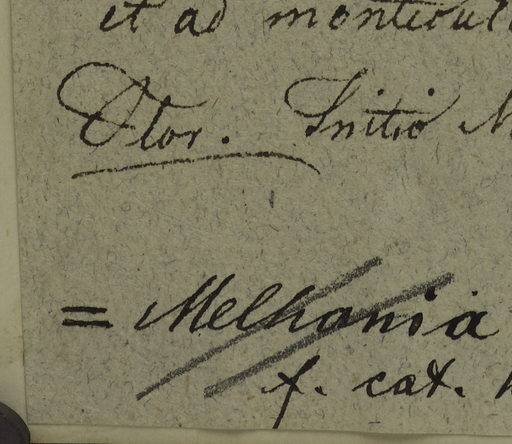 et ad monticul
Flor. Initio M
= Melhania
f. cat.